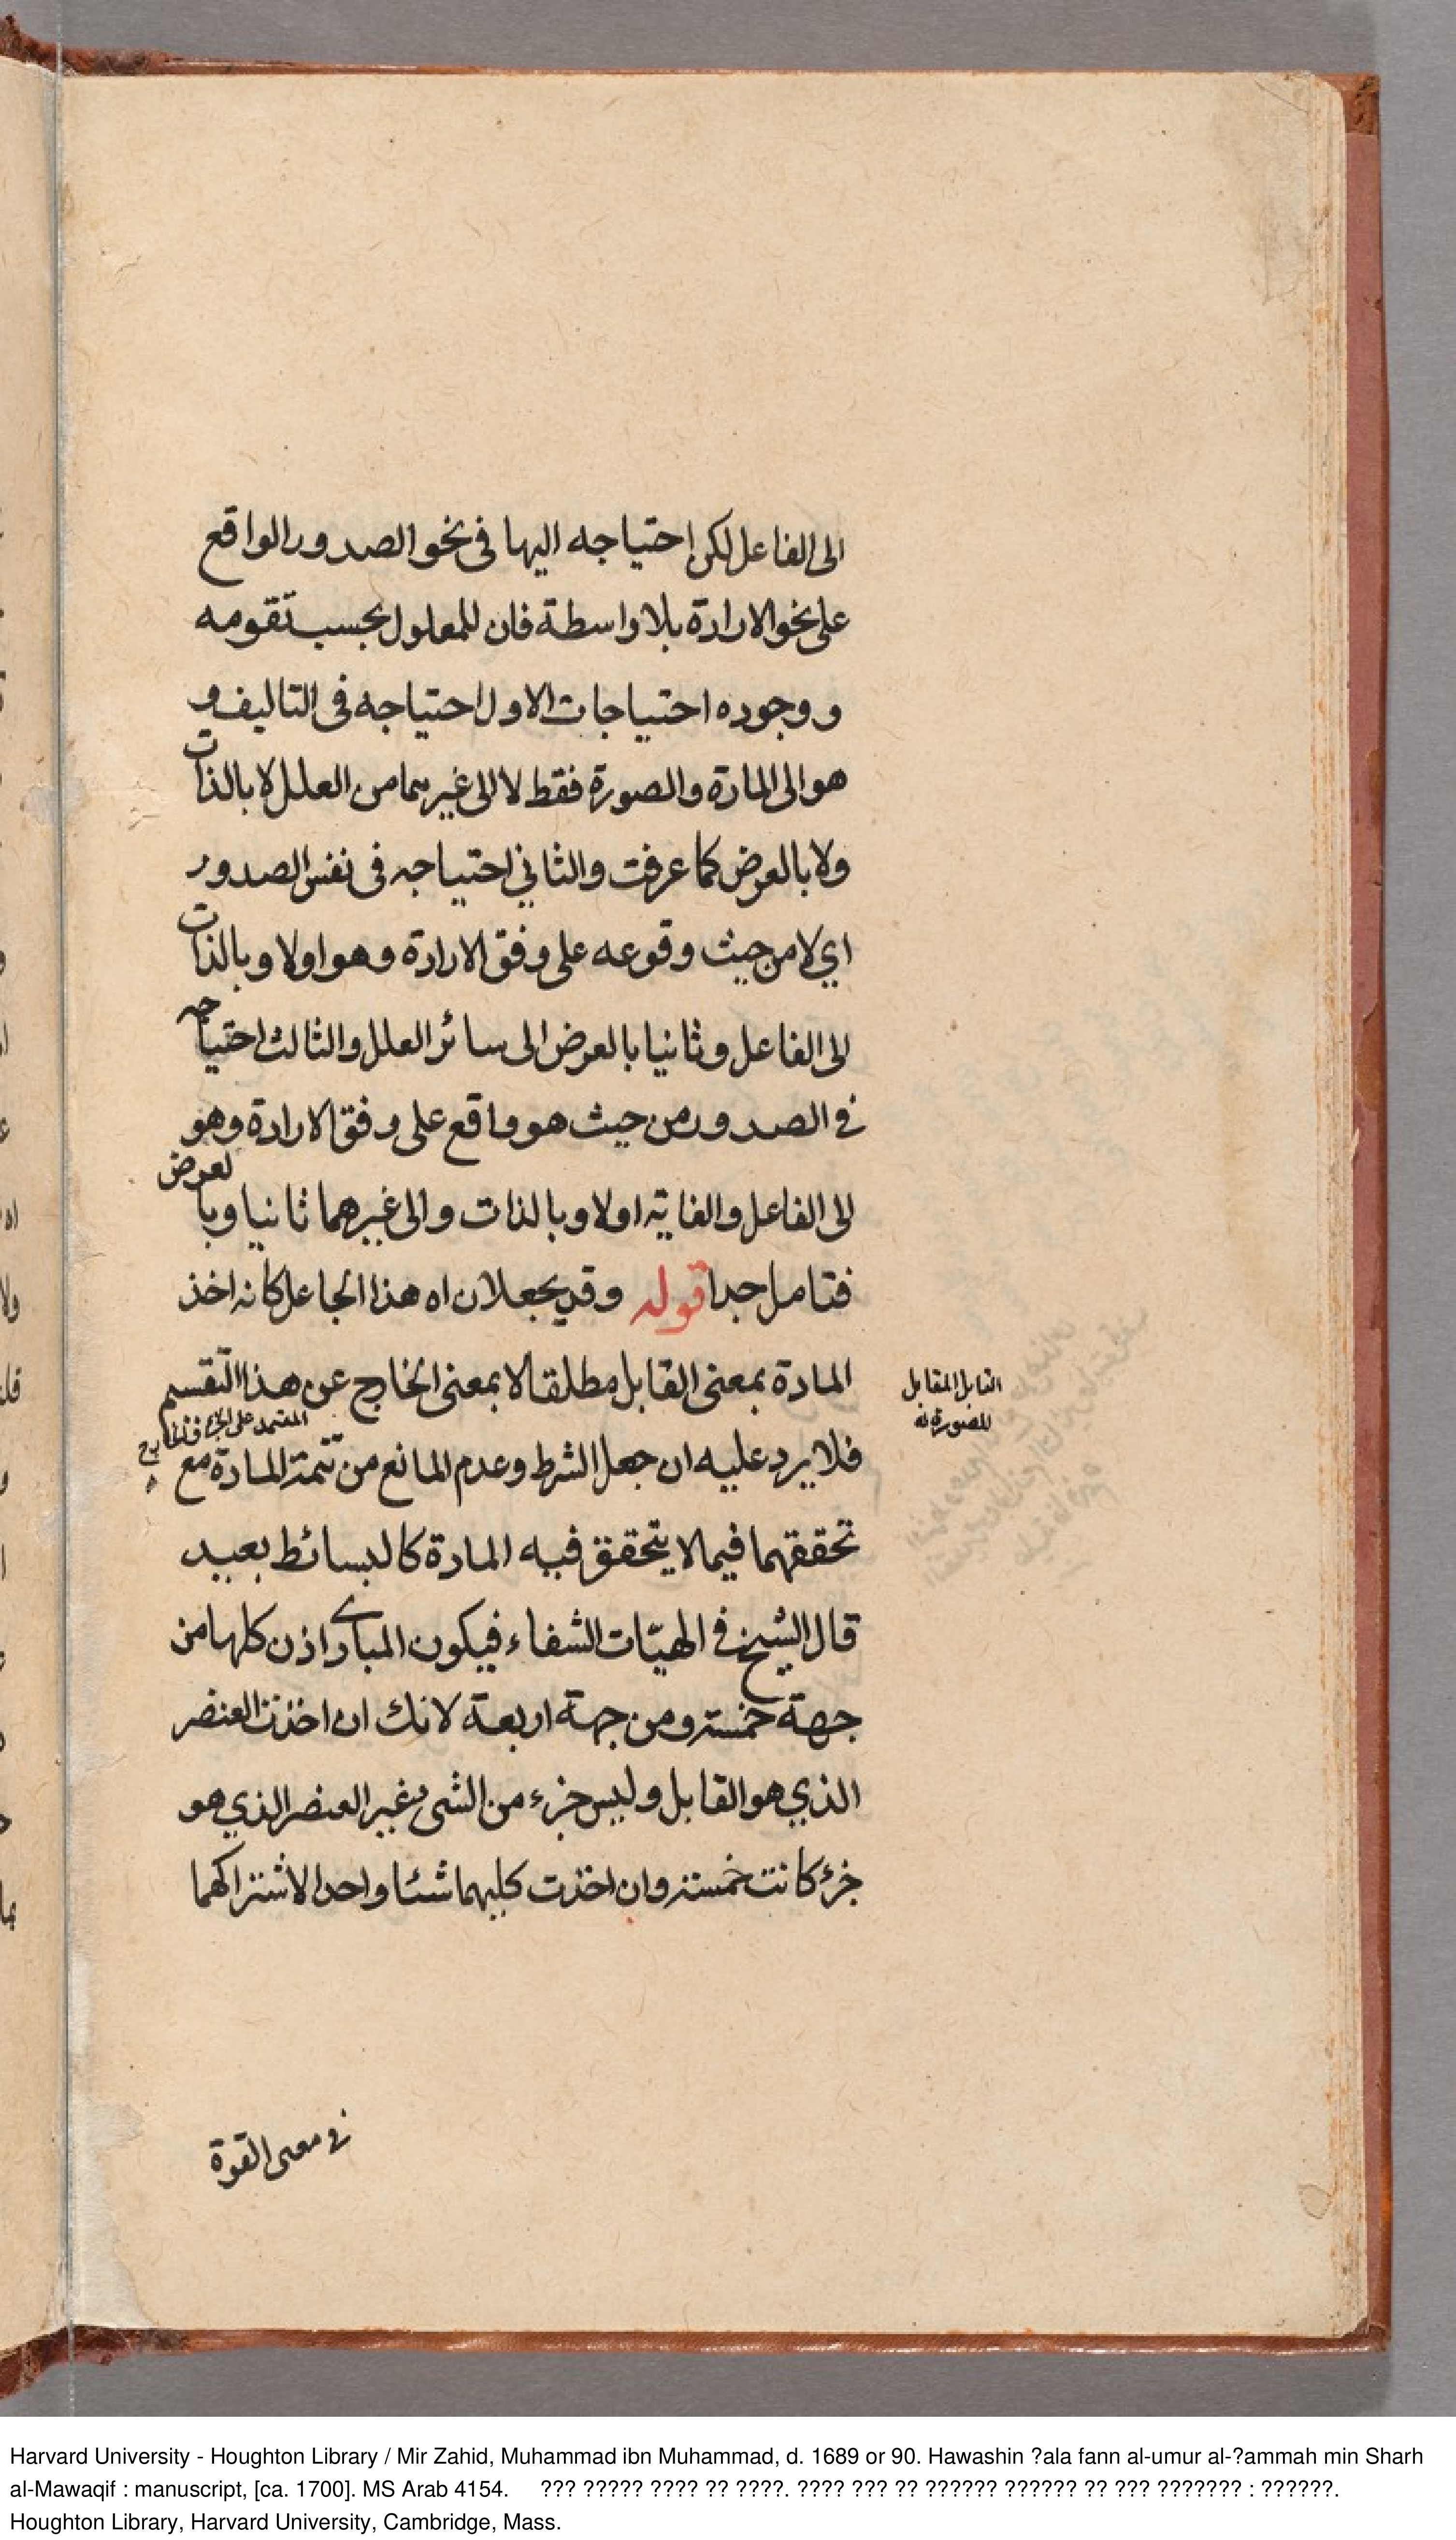 الى الفاعل لكن احتياجه اليها فى نحو الصدور الواقع
على نحو الارادة بلا واسطة فان للمعلول بحسب تقومه
و وجوده احتياجات الاول احتياجه فى التاليف و
هو الى المادة والصورة فقط لا الى غيرهما من العلل لا بالذات
ولا بالعرض كما عرفت والثاني احتياجه فى نفس الصدور
اي لا من حيث وقوعه على وفق الارادة وهو اولا وبالذات
الى الفاعل وثانيا بالعرض الى سائر العلل والثالث احتياجه
فى الصدور من حيث هو واقع على وفق الارادة وهو
الى الفاعل والغاية اولا وبالذات والى غيرهما ثانيا وبالعرض
فتامل جدا قوله وقد يجعلان اه هذا الجاعل كانه اخذ
المادة بمعنى القابل مطلقا لا بمعنى الخارج عن هذا التقسيم
القابل المقابل
للصورة
المعتمد على
فلا يرد عليه ان جعل الشرط وعدم المانع من تتمة المادة مع
تحققهما فيما لا يتحقق فيه المادة كالبسائط بعيد
قال الشيخ فى الهيّات الشفاء فيكون المبادى اذن كلها من
جهة خمسة ومن جهة اربعة لانك ان اخذت العنصر
الذي هو القابل وليس جزء من الشى غير العنصر الذي هو
جزء كانت خمسة وان اخذت كليهما شئا واحدا لاشتراكهما
فى معنى القوة
Harvard University - Houghton Library / Mir Zahid, Muhammad ibn Muhammad, d. 1689 or 90. Hawashin ?ala fann al-umur al-?ammah min Sharh
al-Mawaqif : manuscript, [ca. 1700]. MS Arab 4154. ??? ????? ???? ?? ????. ???? ??? ?? ?????? ?????? ?? ??? ??????? : ??????.
Houghton Library, Harvard University, Cambridge, Mass.